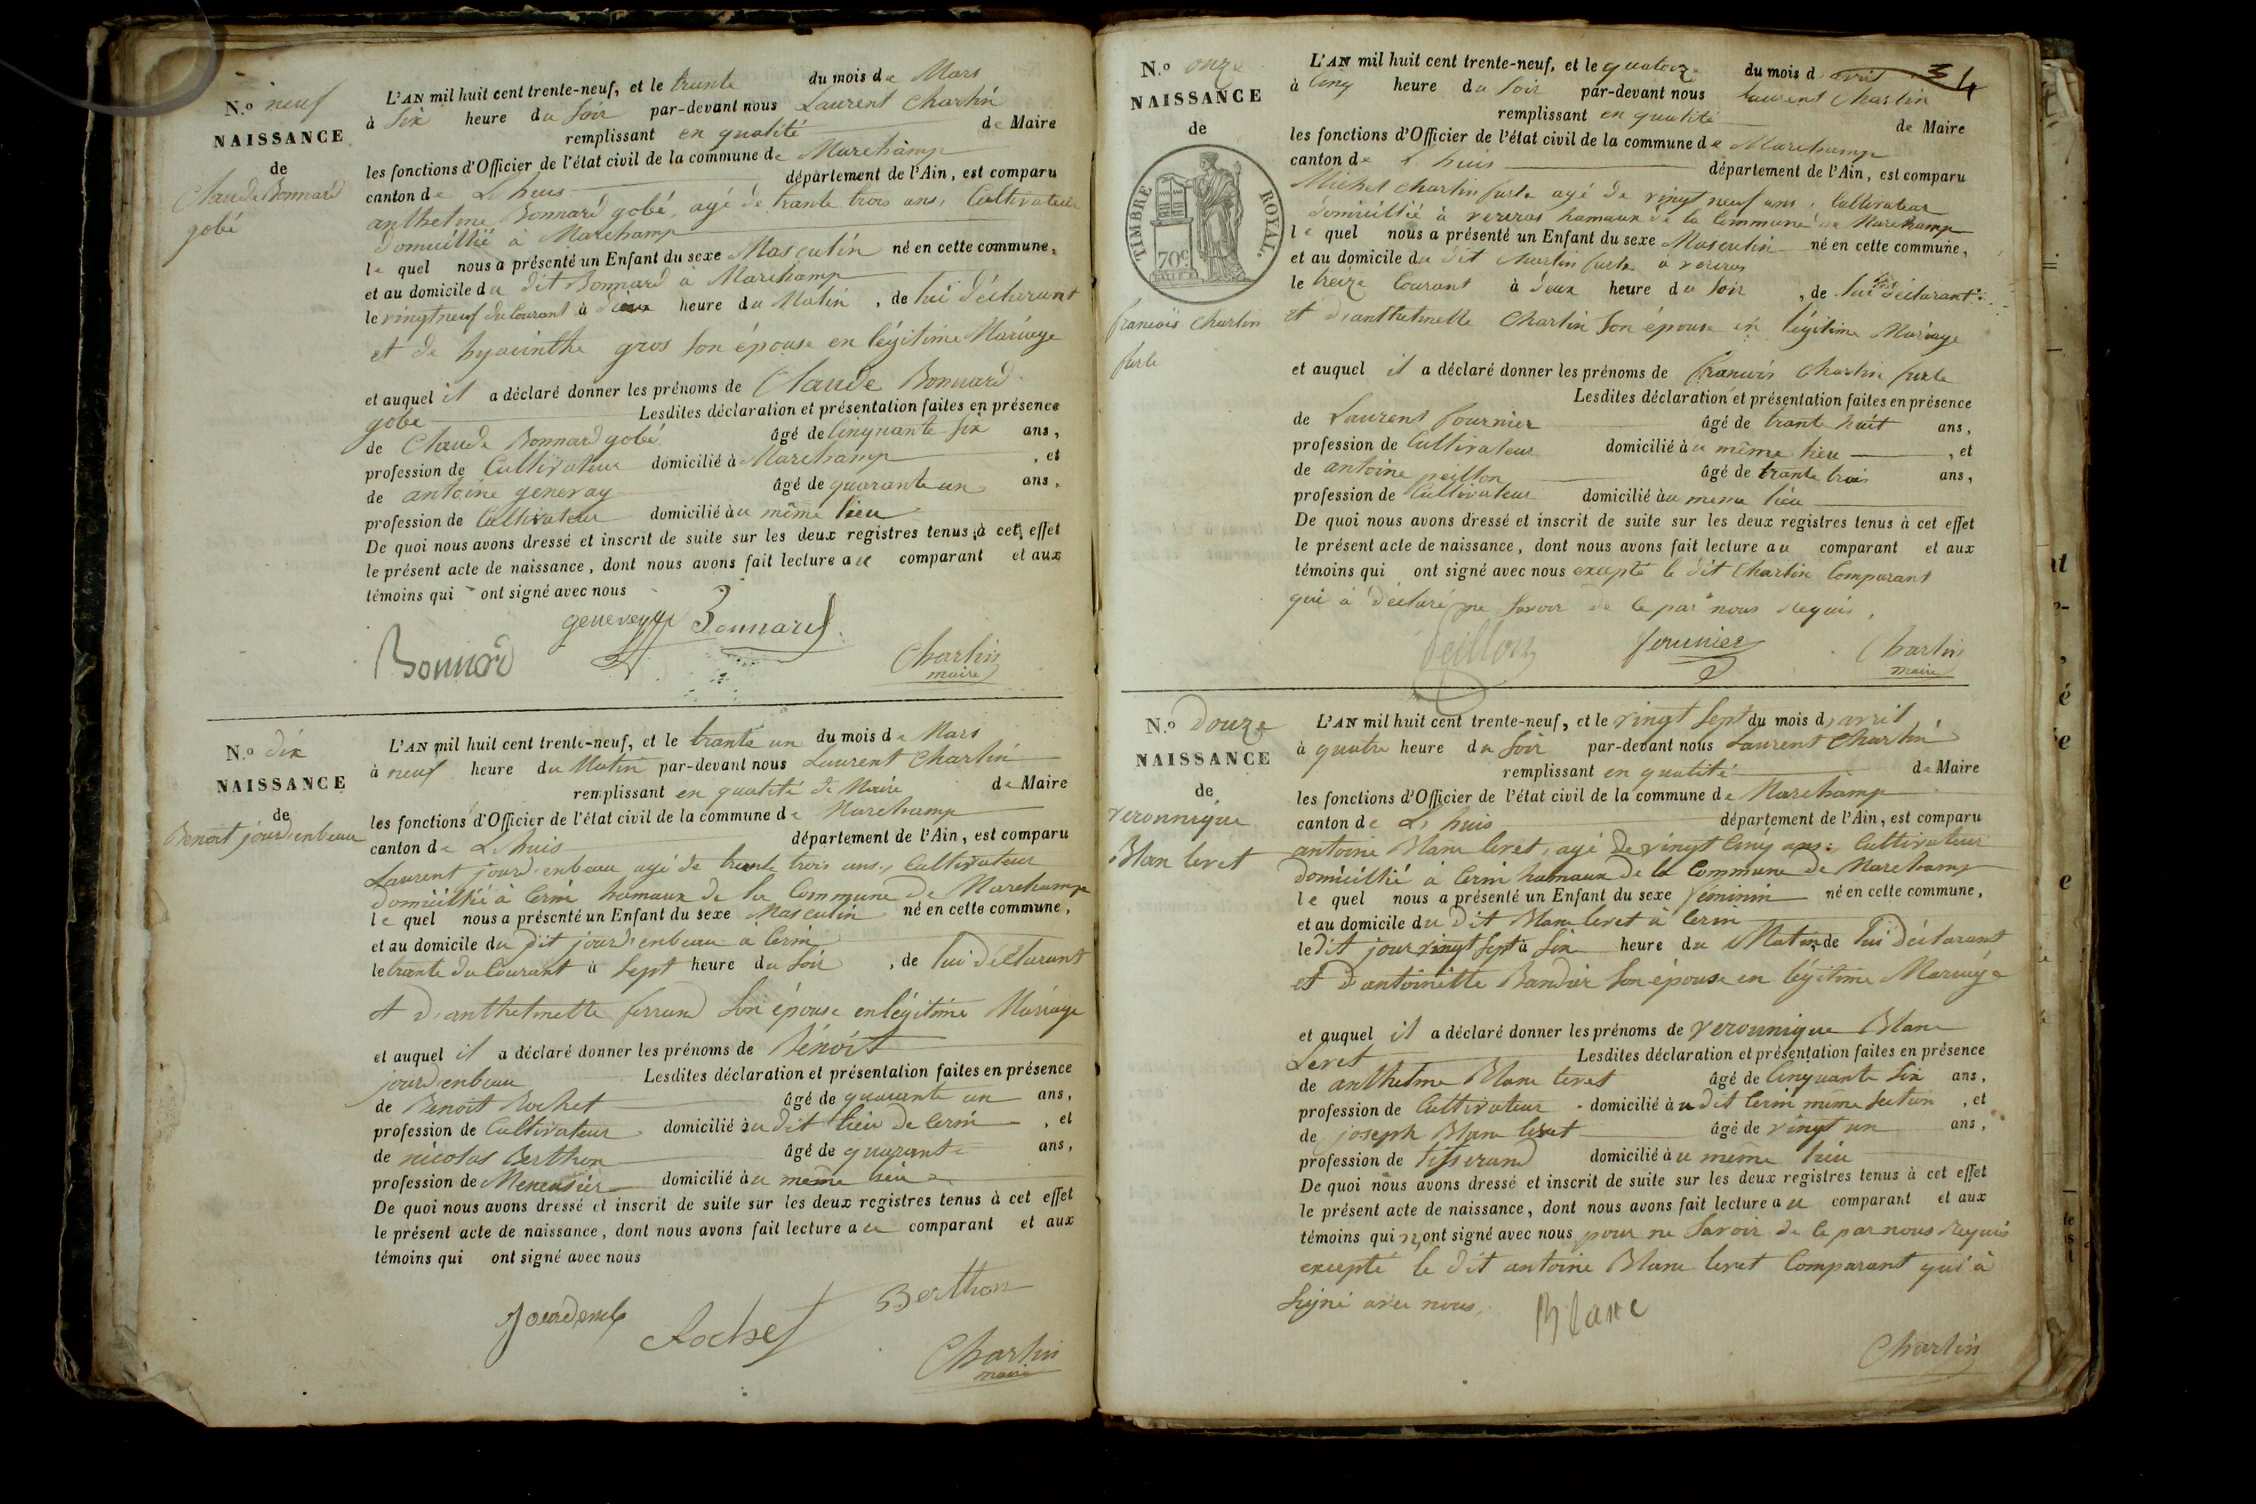 N.o neuf
NAISSANCE
de
Claude Bonnard
gobé
L'AN mil huit cent trente-neuf, et le trente du mois de Mars
à Six heure du Soir par-devant nous Laurent Charlin
remplissant en qualité de Maire
les fonctions d'Officier de l'état civil de la commune de Marchamp
canton de Lhuis département de l'Ain, est comparu
anthelme Bonnard gobé, agé de trante trois ans, Cultivateur
domicillié à Marchamp
le quel nous a présenté un Enfant du sexe Masculin né en cette commune,
et au domicile du dit Bonnard à Marchamp
le vingt neuf du Courant à deux heure du Matin, de lui déclarant
et de hyacinthe gros son épouse en légitime Mariage
et auquel il a déclaré donner les prénoms de Claude Bonnard
gobé Lesdites déclaration et présentation faites en présence
de Claude Bonnard gobé âgé de Cinquante Six ans,
profession de Cultivateur domicilié à Marchamp, et
de antoine genevay âgé de quarante un ans,
profession de Cultivateur domicilié à u même lieu
De quoi nous avons dressé et inscrit de suite sur les deux registres tenus à cet effet
le présent acte de naissance, dont nous avons fait lecture au comparant et aux
témoins qui ont signé avec nous
genevay Bonnard
Bonnard
Charlin
maire
N.o dix
NAISSANCE
de
Benoit jourd'enbeau
L'AN mil huit cent trente-neuf, et le trante un du mois de Mars
à neuf heure du Matin par-devant nous Laurent Charlin
remplissant en qualité de Maire de Maire
les fonctions d'Officier de l'état civil de la commune de Marchamp
canton de Lhuis département de l'Ain, est comparu
Laurent jourd'enbeau agé de trente trois ans, Cultivateur
domicillié à Cerin hamaux de la Commune de Marchamp
le quel nous a présenté un Enfant du sexe Masculin né en cette commune,
et au domicile du dit jourd'enbeau à Cerin
le trante du Courant à Sept heure du Soir, de lui déclarant
et d'anthelmette ferrand Son épouse en légitime Mariage
et auquel il a déclaré donner les prénoms de Bénoît
jourd'enbeau Lesdites déclaration et présentation faites en présence
de Benoit Rochet âgé de quarante un ans,
profession de Cultivateur domicilié à u dit lieu de Cerin, et
de nicolas Berthon âgé de quarante ans,
profession de Menuisier domicilié à u même lieu
De quoi nous avons dressé et inscrit de suite sur les deux registres tenus à cet effet
le présent acte de naissance, dont nous avons fait lecture au comparant et aux
témoins qui ont signé avec nous
Rochet Berthon
Charlin
maire
34
N.o onze
NAISSANCE
de
TIMBRE ROYAL.
70c
francois Charlin
furle
L'AN mil huit cent trente-neuf, et le quatorze du mois d avril
à Cinq heure du Soir par-devant nous Laurent Charlin
remplissant en qualité de Maire
les fonctions d'Officier de l'état civil de la commune de Marchamp
canton de Lhuis département de l'Ain, est comparu
Michel Charlin furle agé de vingt neuf ans, Cultivateur
domicillié à hamaux de la Commune de Marchamp
le quel nous a présenté un Enfant du sexe Masculin né en cette commune,
et au domicile du dit Charlin furle à
le treize Courant à deux heure du Soir, de lui déclarant
et d'anthelmette Charlin Son épouse en légitime Mariage
et auquel il a déclaré donner les prénoms de francois Charlin furle
Lesdites déclaration et présentation faites en présence
de Laurent fournier âgé de trante huit ans,
profession de Cultivateur domicilié à u même lieu, et
de antoine peillon âgé de trante trois ans,
profession de Cultivateur domicilié à u meme lieu
De quoi nous avons dressé et inscrit de suite sur les deux registres tenus à cet effet
le présent acte de naissance, dont nous avons fait lecture au comparant et aux
témoins qui ont signé avec nous excepté le dit Charlin Comparant
qui à déclaré ne Savoir de ce par nous Requis.
peillon fournier Charlin
maire
N.o Douze
NAISSANCE
de
veronnique
Blan levet
L'AN mil huit cent trente-neuf, et le vingt Sept du mois d'avril
à quatre heure du Soir par-devant nous Laurent Charlin
remplissant en qualité de Maire
les fonctions d'Officier de l'état civil de la commune de Marchamp
canton de Lhuis département de l'Ain, est comparu
antoine Blanc levet, agé de vingt Cinq ans, Cultivateur
domicillié à Cerin hamaux de la Commune de Marchamp
le quel nous a présenté un Enfant du sexe féminin né en cette commune,
et au domicile du Dit Blanc levet à Cerin
le Dit jour vingt Sept à Six heure du Matin, de lui déclarant
et D'antoinette Son épouse en légitime Mariage
et auquel il a déclaré donner les prénoms de veronnique Blanc
Levet Lesdites déclaration et présentation faites en présence
de anthelme Blanc levet âgé de Cinquante Six ans,
profession de Cultivateur domicilié à u dit Cerin même Section, et
de joseph Blanc levet âgé de vingt un ans,
profession de tisserand domicilié à u même lieu
De quoi nous avons dressé et inscrit de suite sur les deux registres tenus à cet effet
le présent acte de naissance, dont nous avons fait lecture au comparant et aux
témoins qui n'ont signé avec nous pour ne Savoir de ce par nous Requis
excepté le dit antoine Blanc levet Comparant qui à
Signé avec nous.
Blanc
Charlin